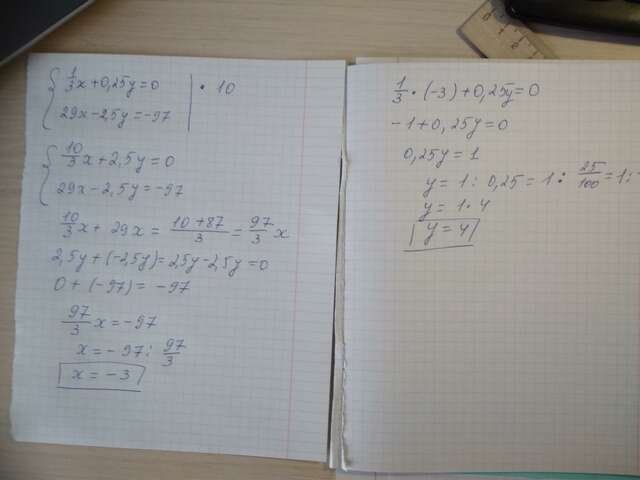 1/3x+0,25y=0 | · 10
29x-2,5y=-97
10/3x+2,5y=0
29x-2,5y=-97
10/3x+29x=(10+87)/3=97/3x
2,5y+(-2,5y)=2,5y-2,5y=0
0+(-97)=-97
97/3x=-97
x=-97:97/3
x=-3
1/3·(-3)+0,25y=0
-1+0,25y=0
0,25y=1
y=1:0,25=1:25/100=1:
y=1·4
y=4